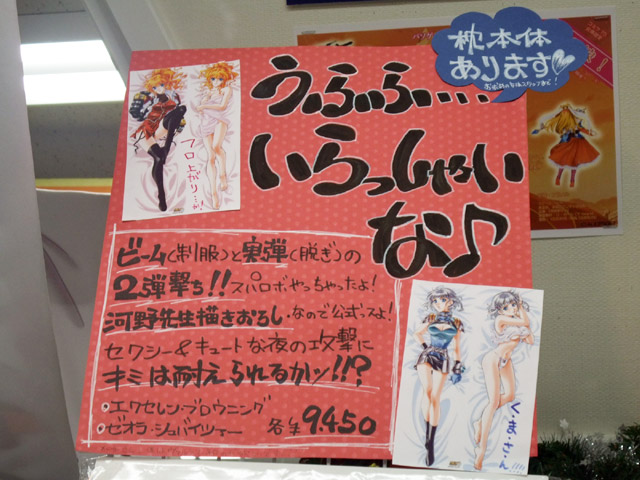 枕本体
あります♡
お近くのお姉スタッフまで!
うふふ…
いらっしゃい
な♪
フロ上がり…か!
ビーム(制服)と実弾(脱ぎ)の
2弾撃ち!!スパロボ、やっちゃったよ!
河野先生描きおろし・なので公式ッスよ!
セクシー&キュートな夜の攻撃に
キミは耐えられるかッ!!?
・エクセレン・ブロウニング
・ゼオラ・シュバイツァー 各¥9450
く・ま・さ・ん!!!!